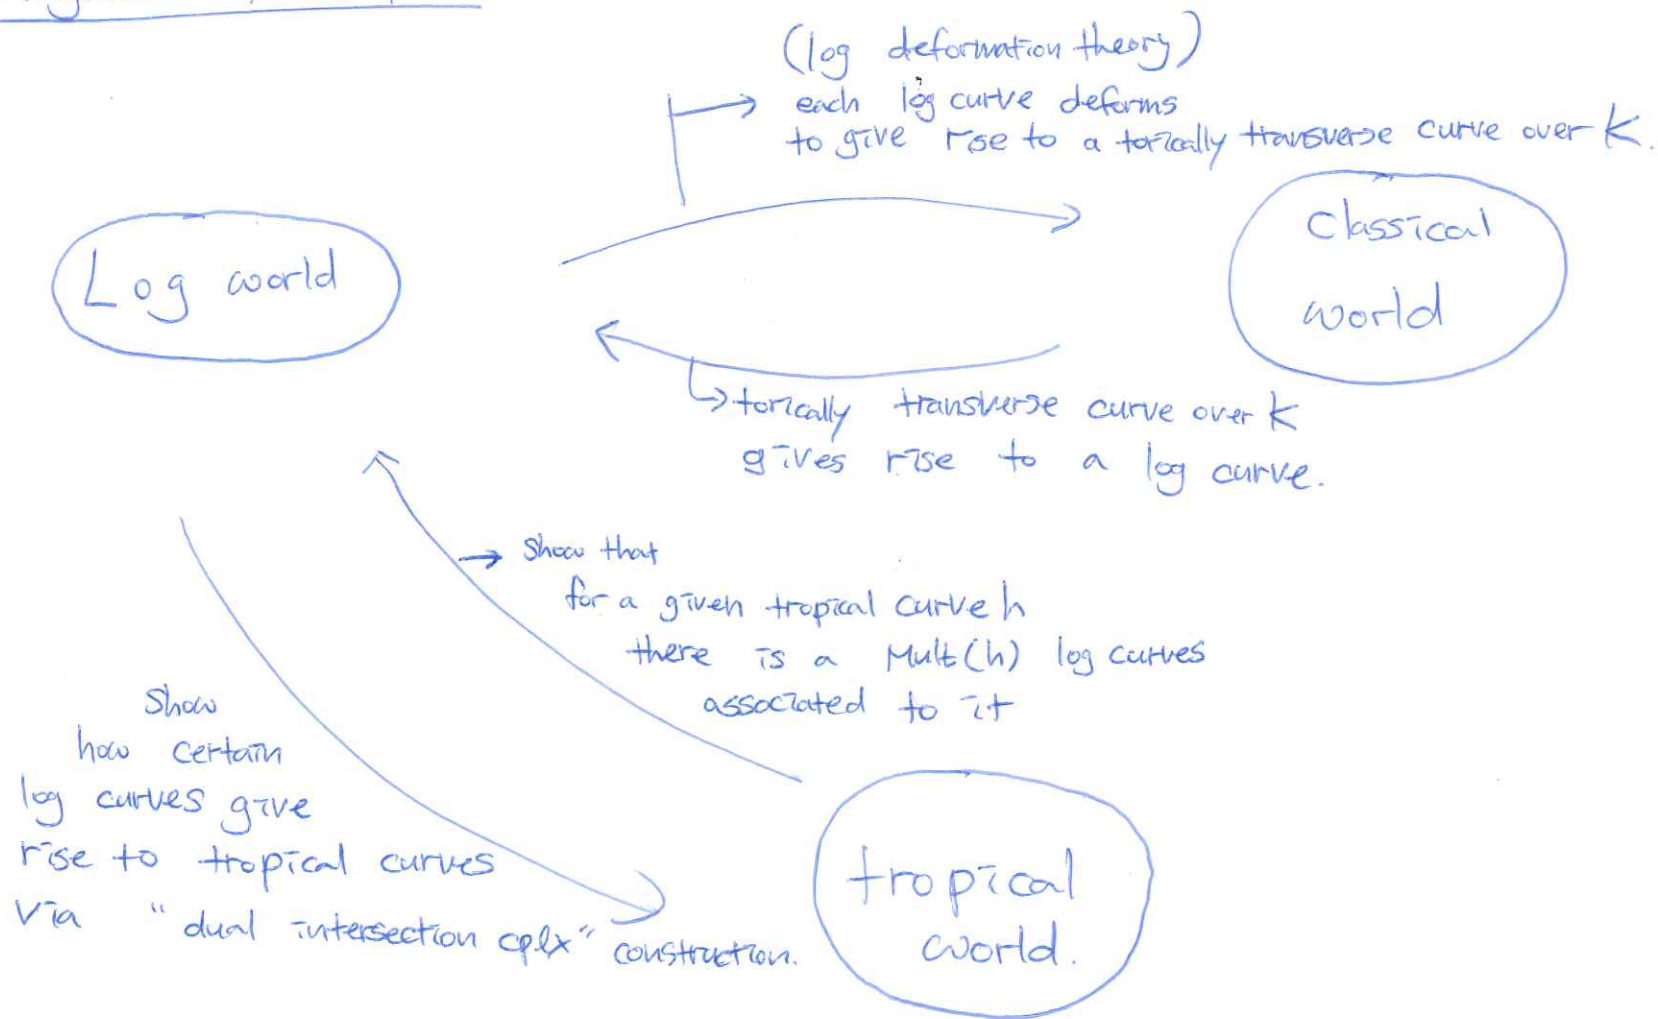 (log deformation theory)
each log curve deforms
to give rise to a torically transverse curve over K.
Log world
Classical
world
torically transverse curve over K
gives rise to a log curve.
Show that
for a given tropical curve h
there is a Mult(h) log curves
associated to it
Show
how certain
log curves give
rise to tropical curves
via "dual intersection cplx" construction.
tropical
world.